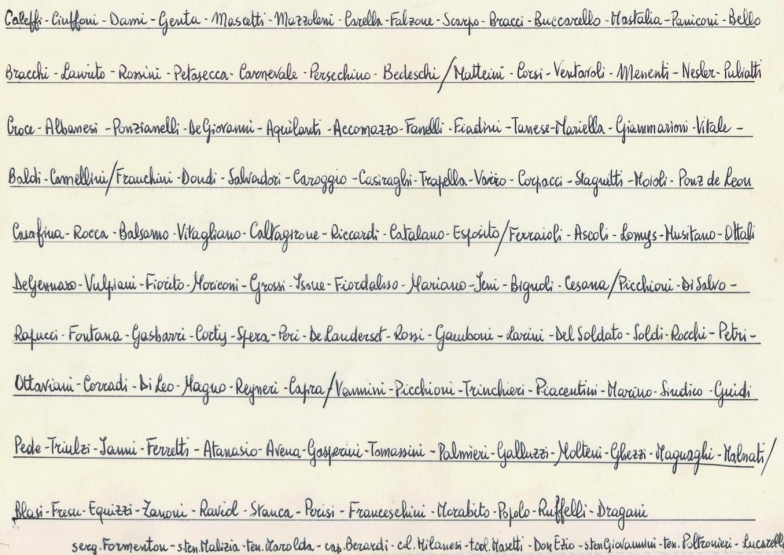 Caleffi - Ciuffoni - Dami - Genta - Mascetti - Mazzoleni - Carella - Falzone - Scarpo - Bracci - Buccarello - Mastalia - Paniconi - Bello
Bracchi - Laurito - Rossini - Petasecca - Carnevale - Persechino - Bedeschi / Matteini - Corsi - Ventaroli - Menenti - Nesler - Puliatti
Croce - Albanesi - Ponzianelli - De Giovanni - Aquilanti - Accomazzo - Fanelli - Fiadini - Tanese - Mariella - Giammarioni - Vitale -
Baldi - Camellini / Franchini - Dondi - Salvadori - Caroggio - Casiraghi - Trapella - Varizo - Corpacci - Stagnitti - Moioli - Ponz de Leon
Casafina - Rocca - Balsamo - Vitagliano - Caltagirone - Riccardi - Catalano - Esposito / Ferraioli - Ascoli - Lomys - Musitano - Ottali
De Gennaro - Vulpiani - Fiorito - Moriconi - Grossi - Issue - Fiordaliso - Mariano - Jeni - Bignoli - Cesana / Picchioni - Di Salvo -
Rapucci - Fontana - Gasbarri - Corty - Sfera - Peri - De Landerset - Rossi - Gamboni - Larini - Del Soldato - Soldi - Rocchi - Petri -
Ottaviani - Corradi - Di Leo - Magno - Reyneri - Capra / Vannini - Picchioni - Trinchieri - Piacentini - Marino - Sindico - Guidi
Pede - Triulzi - Ianni - Ferretti - Atanasio - Avena - Gasperini - Tomassini - Palmieri - Galluzzi - Molteni - Ghezzi - Magnaghi - Malnati /
Blasi - Fresu - Equizzi - Zanoni - Raviol - Stanca - Perisi - Franceschini - Morabito - Popolo - Ruffelli - Dragani
serg. Formenton - sten. Malizia - ten. Marolda - cap. Berardi - cd. Milanesi - tcol. Masetti - Don Ezio - sten Giovannini - ten. Poltronieri - Lucarelli